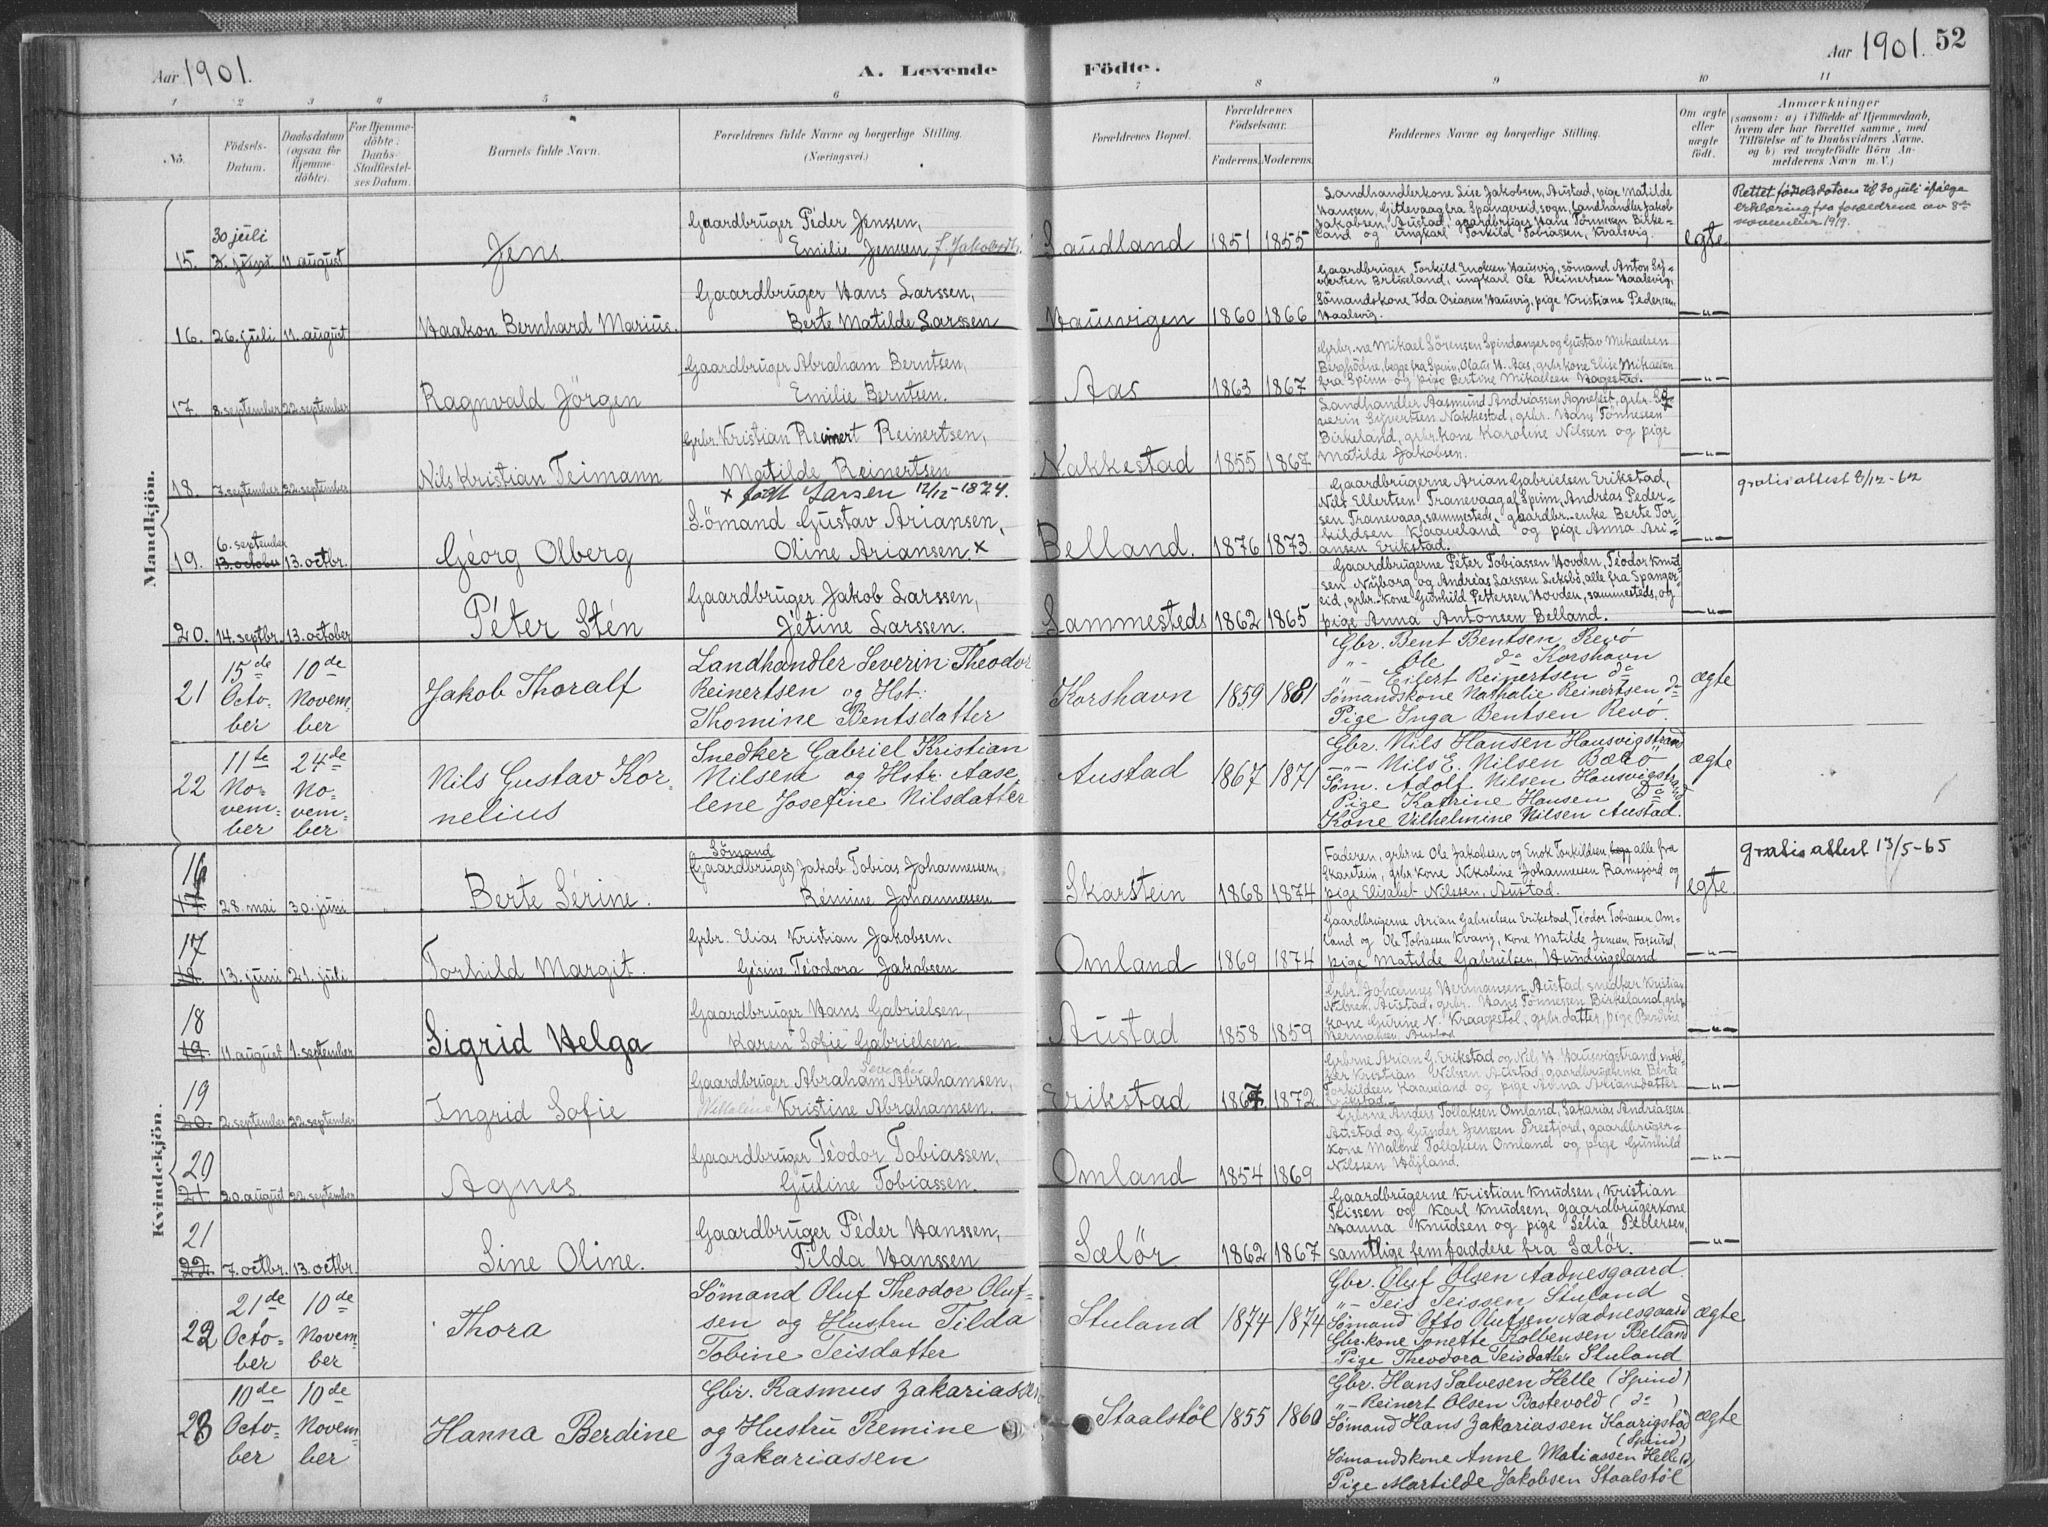 Aar 1901.
A. Levende Födte.
Aar 1901. 52
1 2 3 4 5 6 7 8 9 10 11
No.
Födsels-Datum.
Daabsdatum (ogsaa for Hjemme-döbte).
For Hjemme-döbte: Daabs-Stadfæstel-ses Datum.
Barnets fulde Navn.
Forældrenes fulde Navne og borgerlige Stilling.
(Næringsvei.)
Forældrenes Bopæl.
Forældrenes Födselsaar.
Faderens. Moderens.
Faddernes Navne og borgerlige Stilling.
Om ægte eller uægte födt.
Anmærkninger
(saasom: a) i Tilfælde af Hjemmedaab, hvem der har forrettet samme, med Tilföielse af to Daabsvidners Navne, og b) ved uægtefödte Börn An-melderens Navn m. V.)
Mandkjön.
15. 30 juli 2. juni 11 august
Jens
Gaardbruger Péder Jenssen,
Emilie Jenssen f. Jakobsdtr.
Saudland 1851 1855
Landhandlerkone Lise Jakobsen, Austad, pige Matilde
Hanssen, Gitlevaag fra Spangereid sogn, Landhandler Jakob
Jakobsen, Austad, gaardbruger Hans Tönnessen Birke-
land og ungkarl Torkild Tobiassen, Kvalsvig.
egte
Rettet fødselsdatoen til 30 juli ifølge
erklæring fra forældrene av 8de
november 1919.
16. 26. juli 11. august
Haakon Bernhard Marius.
Gaardbruger Hans Larssen,
Berte Matilde Larssen
Hausvigen 1860 1866
Gaardbruger Torkild Enoksen Hausvig, sömand Anton Sy-
vertsen Briseland, ungkarl Ole Reinertsen Haalevig,
Sömandskone Ida Oreasen Hausvig, pige Kristiane Pedersen,
Haalsvig.
—"—
17. 8. september 22. september
Ragnvald Jörgen
Gaardbruger Abraham Berntsen,
Emilie Berntsen.
Aas 1863 1867
Grbr.ne Mikael Sörensen Spindanger og Gustav Mikaelsen
Berghödne, begge fra Spinn, Olaus H. Aas, grbr.kone Elise Mikaelsen
fra Spinn og pige Bertine Mikaelsen Hagestad.
—"—
18. 7. september 22. september
Nils Kristian Teimann
Grbr. Kristian Reinert Reinertsen,
Matilde Reinertsen
Nakkestad 1855 1867
Landhandler Aasmund Andreassen Agnefest, grbr. Se-
verin Syvertsen Nakkestad, grbr. Hans Tönnessen
Birkeland, grbr.kone Karoline Nilsen og pige
Matilde Jakobsen.
—"—
19. 6. september 13. october 13. octbr.
Géorg Olberg
× født Larsen 12/12-1874.
Sömand Gustav Ariansen,
Oline Ariansen ×
Belland. 1876 1873.
Gaardbrugerne Arian Gabrielsen Erikstad,
Nils Ellertsen Tranevaag af Spinn, Andreas Peder-
sen Tranevaag, sammesteds, gaardbr.-enke Berte Tor-
kildsen Kaaveland og pige Anna Ari-
ansen Erikstad.
—"—
gratis attest 8/12-62
20. 14. septbr. 13. october
Péter Stén
Gaardbruger Jakob Larssen,
Jétine Larssen.
Sammesteds 1862 1865
Gaardbrugerne Péter Tobiassen Hovden, Téodor Knud-
sen Nyborg og Andréas Larssen Leksbö, alle fra Spanger-
eid, grbr.-kone Gunhild Pettersen Hovden, sammesteds, og
pige Anna Antonsen Belland.
—"—
21 15de Octo-ber 10de Novem-ber
Jakob Thoralf
Landhandler Severin Theodor
Reinertsen og Hst:
Thomine Bentsdatter
Korshavn 1859 1881
Gbr. Bent Bentsen Revö
"— Ole do Korshavn
"— Eilert Reinertsen do
Sømandskone Nathalie Reinertsen do
Pige Inga Bentsen Revö.
ægte
22 11te No-vem-ber 24de No-vem-ber
Nils Gustav Kor-
nelius
Snedker Gabriel Kristian
Nilsen og Hstr. Aase-
lene Josefine Nilsdatter
Austad 1867 1871
Gbr. Nils Hansen Hausvigstrand
—"— Nils E. Nilsen Bærö
Söm. Adolf Nilsen Hausvigstrand
Pige Katrine Hansen do
Kone Vilhelmine Nilsen Austad.
ægte
Kvindekjön.
16 28. mai 30. juni
Berte Sérine.
Sömand
(Gaardbruger) Jakob Tobias Johannessen,
Rémine Johannessen
Skarstein 1868 1874
Faderen, grbrne Ole Jakobsen og Enok Torkildsen begge alle fra
Skarstein, grbr kone Nikoline Johannessen Ramsfjord og
pige Elisabet Nilssen, Austad.
egte
gratis attest 13/5-65
17 18 13. juni 21. juli
Torhild Margit.
Grbr. Elias Kristian Jakobsen.
Gésine Téodora Jakobsen
Omland 1869 1874
Gaardbrugerne Arian Gabrielsen Erikstad, Téodor Tobiassen Om-
land og Ole Tobiassen Kvavig, kone Matilde Jensen Farsund,
pige Matilde Gabrielsen, Hundingeland
—"—
18 19. 11 august 1. september
Sigrid Helga
Gaardbruger Hans Gabrielsen,
Karen Sofie Gabrielsen
Austad 1858 1859
Grbr. Johannes Hermansen, Austad, snedker Kristian
Nilsen, Austad, grbr. Hans Tönnessen Birkeland, grbr.
kone Gurine N. Kraagestöl, grbr.datter, pige Berdine
Hermansen Austad
—"—
19 20. 2. september 22. september
Ingrid Sofie
Gaardbruger Abraham Abrahamsen,
Kristine Abrahamsen.
Erikstad 1867. 1872.
Grbrne Arian G. Erikstad og Nils H. Hausvigstrand, sned-
ker Kristian Nilssen Austad, gaardbrugerenke Berte
Torkildsen Kaaveland og pige Anna Ariansdatter
Erikstad.
—"—
20 21. 20. august 22. september
Agnes
Gaardbruger Téodor Tobiassen,
Guline Tobiassen.
Omland 1854 1869
Grbrne Anders Tollaksen Omland, Sakarias Andréassen
Austad og Gunder Jenssen Prestfjord, gaardbruger-
kone Maléne Tollaksen Omland og pige Gunhild
Nilssen Höjland.
—"—
21 22. 7. octbr. 13. octbr.
Sine Oline.
Gaardbruger Péder Hanssen,
Tilda Hanssen
Sælör 1862 1867
Gaardbrugerne Kristian Knudsen, Kristian
Teissen og Karl Knudsen, gaardbrugerkone
Hanna Knudsen og pige Sélia Pedersen,
samtlige fem faddere fra Sælör.
—"—
22 21de Octo-ber 10de Novem-ber
Thora
Sömand Oluf Theodor Oluf-
sen og Hustru Tilda
Tobine Teisdatter
Stuland 1874 1874
Gbr. Oluf Olsen Aadnesgaard.
"— Teis Teissen Stuland
Sømand Otto Olufsen Aadnesgaard
Gbr.kone Tonette Kolbensen Belland
Pige Theodora Teisdatter Stuland
ægte
23 10de Octo-ber 10de Novem-ber
Hanna Berdine
Gbr. Rasmus Zakariassen
og Hustru Remine
Zakariassen
Staalstöl 1855 1860
Gbr. Hans Salvesen Helle (Spind)
"— Reinert Olsen Bastevold (do)
Sømand Hans Zakariassen Kaarigstad
(Spind)
Sømandskone Anne Matiassen Helle (do)
Pige Martilde Jakobsen Staalstöl
ægte